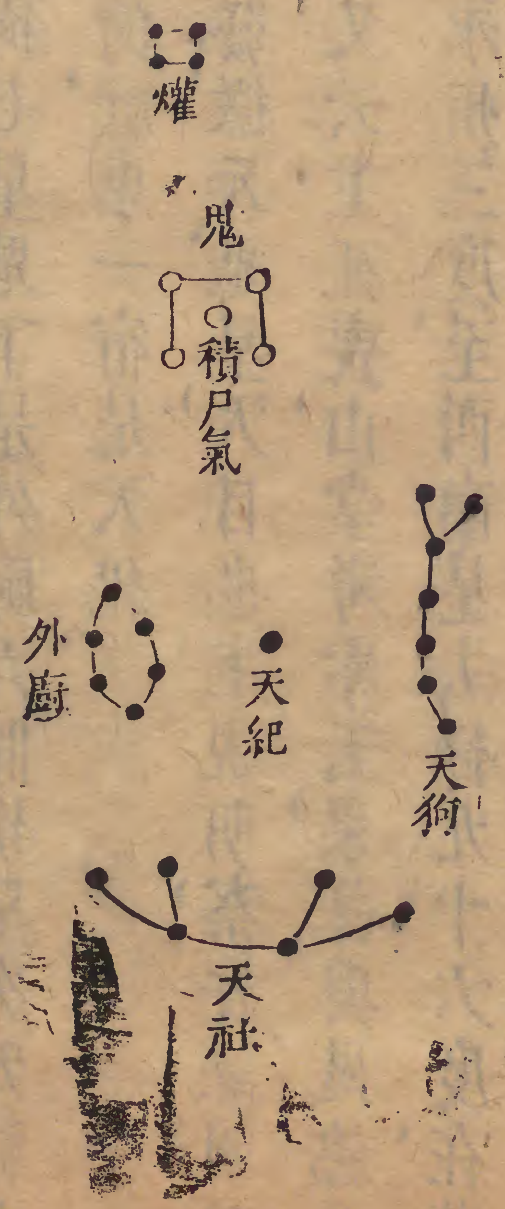 爟
鬼
積尸氣
外廚
天紀
天狗
天社